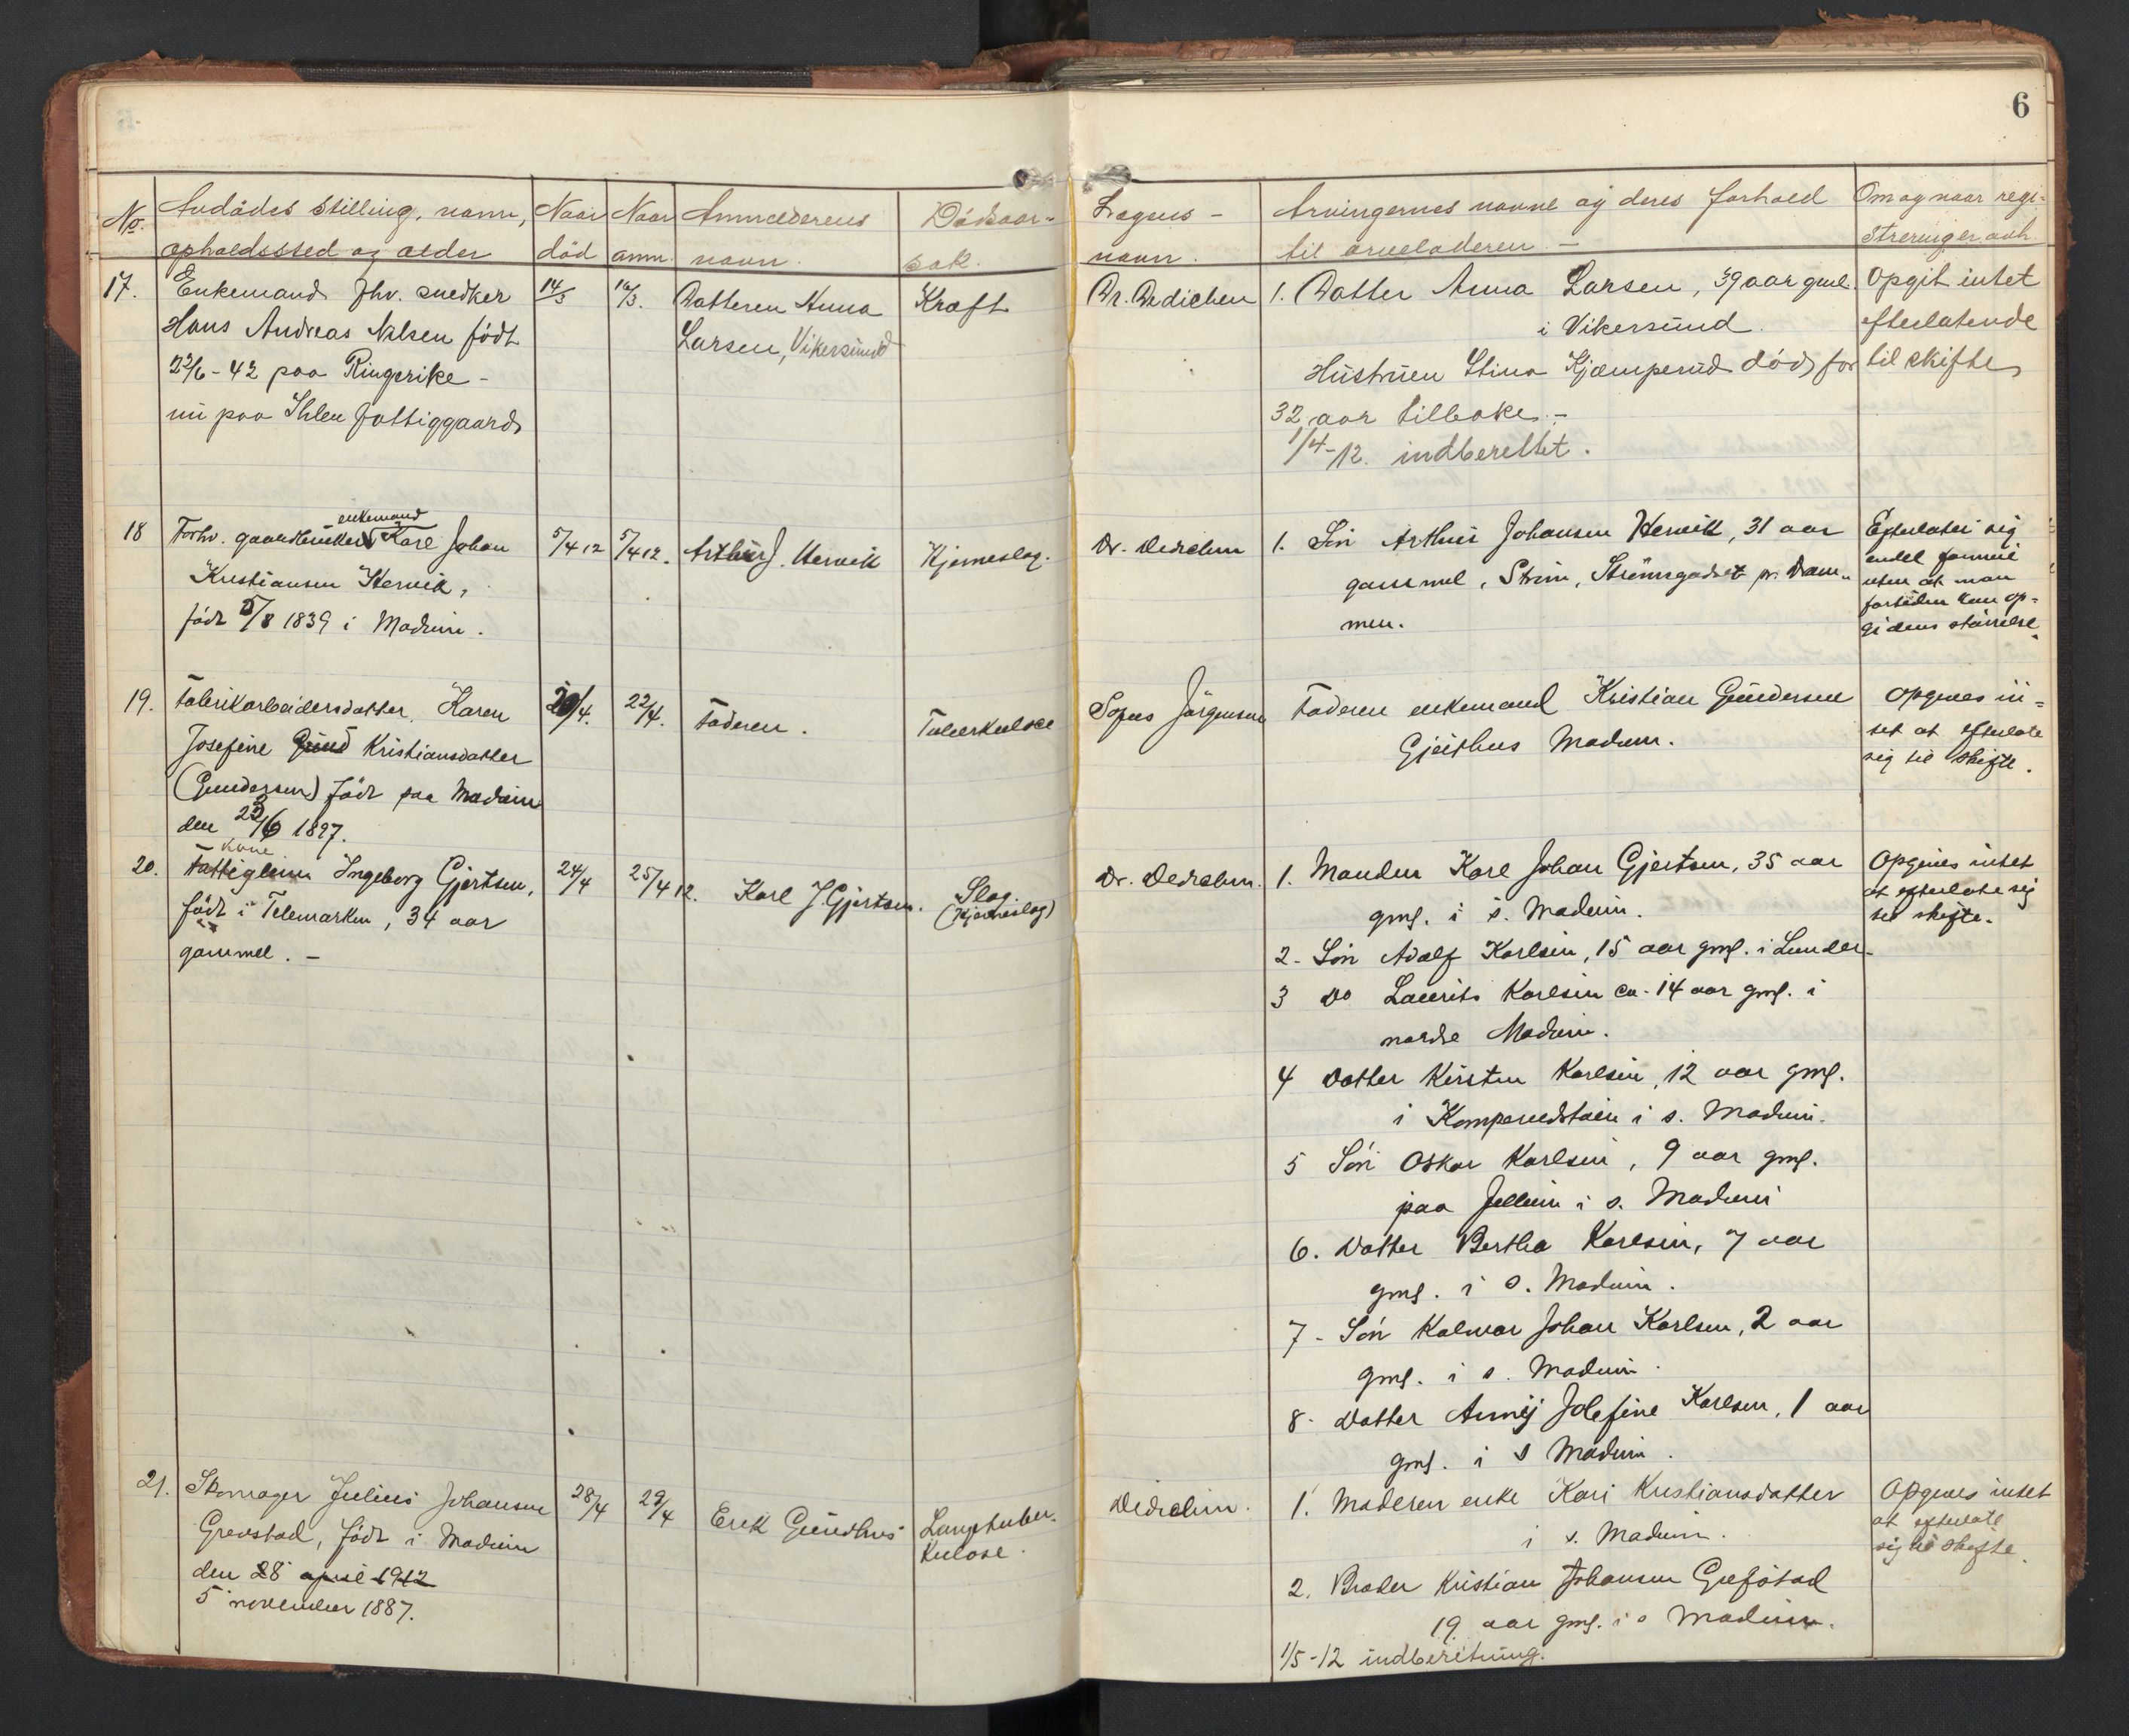 6
No.
Avdødes stilling, navn,
opholdssted og alder
Naar
død
Naar
anm.
Anmelderens
navn.
Dødsaar-
sak.
Lægens -
navn.
Arvingernes navne og deres forhold
til arveladeren -
Om og naar regi-
streringer avh.
17.
Enkemand fhv. snedker
Hans Andreas Nilsen født
22/6 - 42 paa Ringerike -
nu paa Ihlen fattiggaard
14/3
16/3.
Datteren Anna
Larsen, Vikersund
Kræft
Dr. Dedichen
1. Datter Anna Larsen, 39 aar gml.
i Vikersund.
Hustruen Stina Kjæmperud død for
32 aar tilbake. -
1/4-12. indberettet.
Opgit intet
efterlatende
til skifte
18
enkemand
Forhv. gaardbruker Karl Johan
Kristiansen Hervik,
født 5/8 1839 i Modum.
5/4 12
5/4 12.
Arthur J. Hervik
Hjerneslag.
Dr. Dedichen
1. Søn Arthur Johansen Hervik, 31 aar
gammel, Strøm, Strømsgodset pr. Dram-
men.
Efterlater sig
endel formue
uten at man
fortiden kan op-
gi dens størrelse.
19.
Fabrikarbeidersdatter Karen
Josefine Gund Kristiansdatter
(Gundersen) født paa Modum
den 22/6 1897.
20/4.
22/4.
Faderen.
Tuberkulose
Sofus Jørgensen
Faderen enkemand Kristian Gundersen
Gjeithus Modum.
Opgives in-
tet at efterlate
sig til skifte.
20.
kone
Fattiglem Ingeborg Gjertsen,
født i Telemarken, 34 aar
gammel. -
24/4
25/4 12.
Karl J. Gjertsen.
Slag.
(Hjerneslag)
Dr. Dedichen.
1. Manden Karl Johan Gjertsen, 35 aar
gml. i s. Modum.
2. Søn Adolf Karlsen, 15 aar gml. i Lunder.
3 Do Laurits Karlsen ca. 14 aar gml. i
nordre Modum.
4 Datter Kirsten Karlsen, 12 aar gml.
i s. Modum.
5 Søn Oskar Karlsen, 9 aar gml.
paa i s. Modum
6. Datter Bertha Karlsen, 7 aar
gml. i s. Modum.
7 - Søn Kalmar Johan Karlsen, 2 aar
gml. i s. Modum.
8. Datter Josefine Karlsen, 1 aar
gml. i s Modum.
Opgives intet
at efterlate sig
til skifte.
21.
Skomager Julius Johansen
Grevstad, født i Modum
den 28 april 1912
5 november 1887.
28/4
29/4
Erik Gundhus
Lungetuber-
kulose.
Dedichen.
1. Moderen enke Kari Kristiansdatter
i s. Modum.
2. Broder Kristian Johansen Grefstad
19 aar gml. i s Modum.
1/5-12 indberetning.
Opgives intet
at efterlate
sig til skifte.